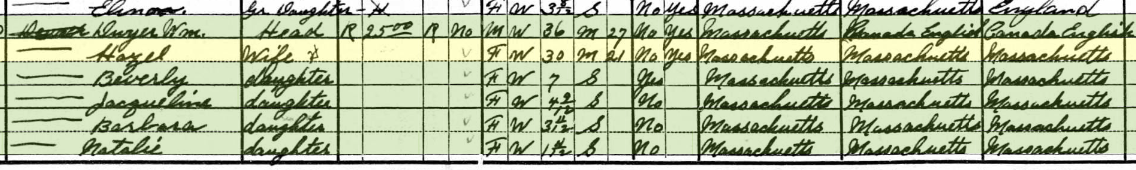 Elinor Gr. Daughter - H F W 3 S No Yes Massachusetts Massachusetts England
Dwyer Wm. Head R 25.00 R No M W 36 M 27 No Yes Massachusetts Canada English Canada English
Hazel Wife F W 30 M 21 No Yes Massachusetts Massachusetts Massachusetts
Beverly daughter F W 7 S Yes Massachusetts Massachusetts Massachusetts
Jacqueline daughter F W 4 9/12 S No Massachusetts Massachusetts Massachusetts
Barbara daughter F W 3 11/12 S No Massachusetts Massachusetts Massachusetts
Natalie daughter F W 1 S No Massachusetts Massachusetts Massachusetts